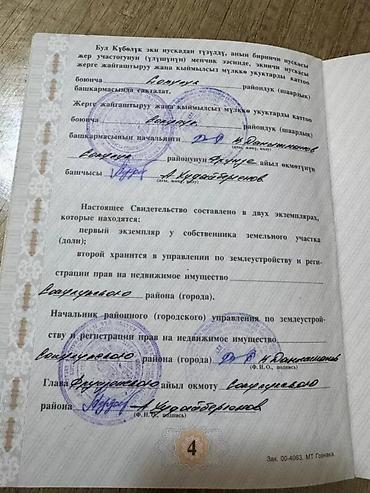 Бул Күбөлүк эки нускадан түзүлдү, анын биринчи нускасы
жер участогунун (үлүшүнүн) менчик ээсинде, экинчи нускасы
жерге жайгаштыруу жана кыймылсыз мүлккө укуктарды каттоо
боюнча Сокулук райондук (шаардык)
башкармасында сакталат.
Жерге жайгаштыруу жана кыймылсыз мүлккө укуктарды каттоо
боюнча Сокулук райондук (шаардык)
башкармасынын начальниги
(аты, жөнү, колу)
Сокулук районунун Фрунзе айыл өкмөтүнүн
башчысы А. Кудайбергенов
(аты, жөнү, колу)
Настоящее Свидетельство составлено в двух экземплярах,
которые находятся:
первый экземпляр у собственника земельного участка
(доли);
второй хранится в управлении по землеустройству и реги-
страции прав на недвижимое имущество
Сокулукского района (города).
Начальник районного (городского) управления по землеустрой-
ству и регистрации прав на недвижимое имущество
Сокулукского района (города)
(Ф.И.О., подпись)
Глава Фрунзенского айыл окмоту Сокулукского
района А. Кудайбергенов
(Ф.И.О., подпись)
4
Зак. 00-4063. МТ Гознака.